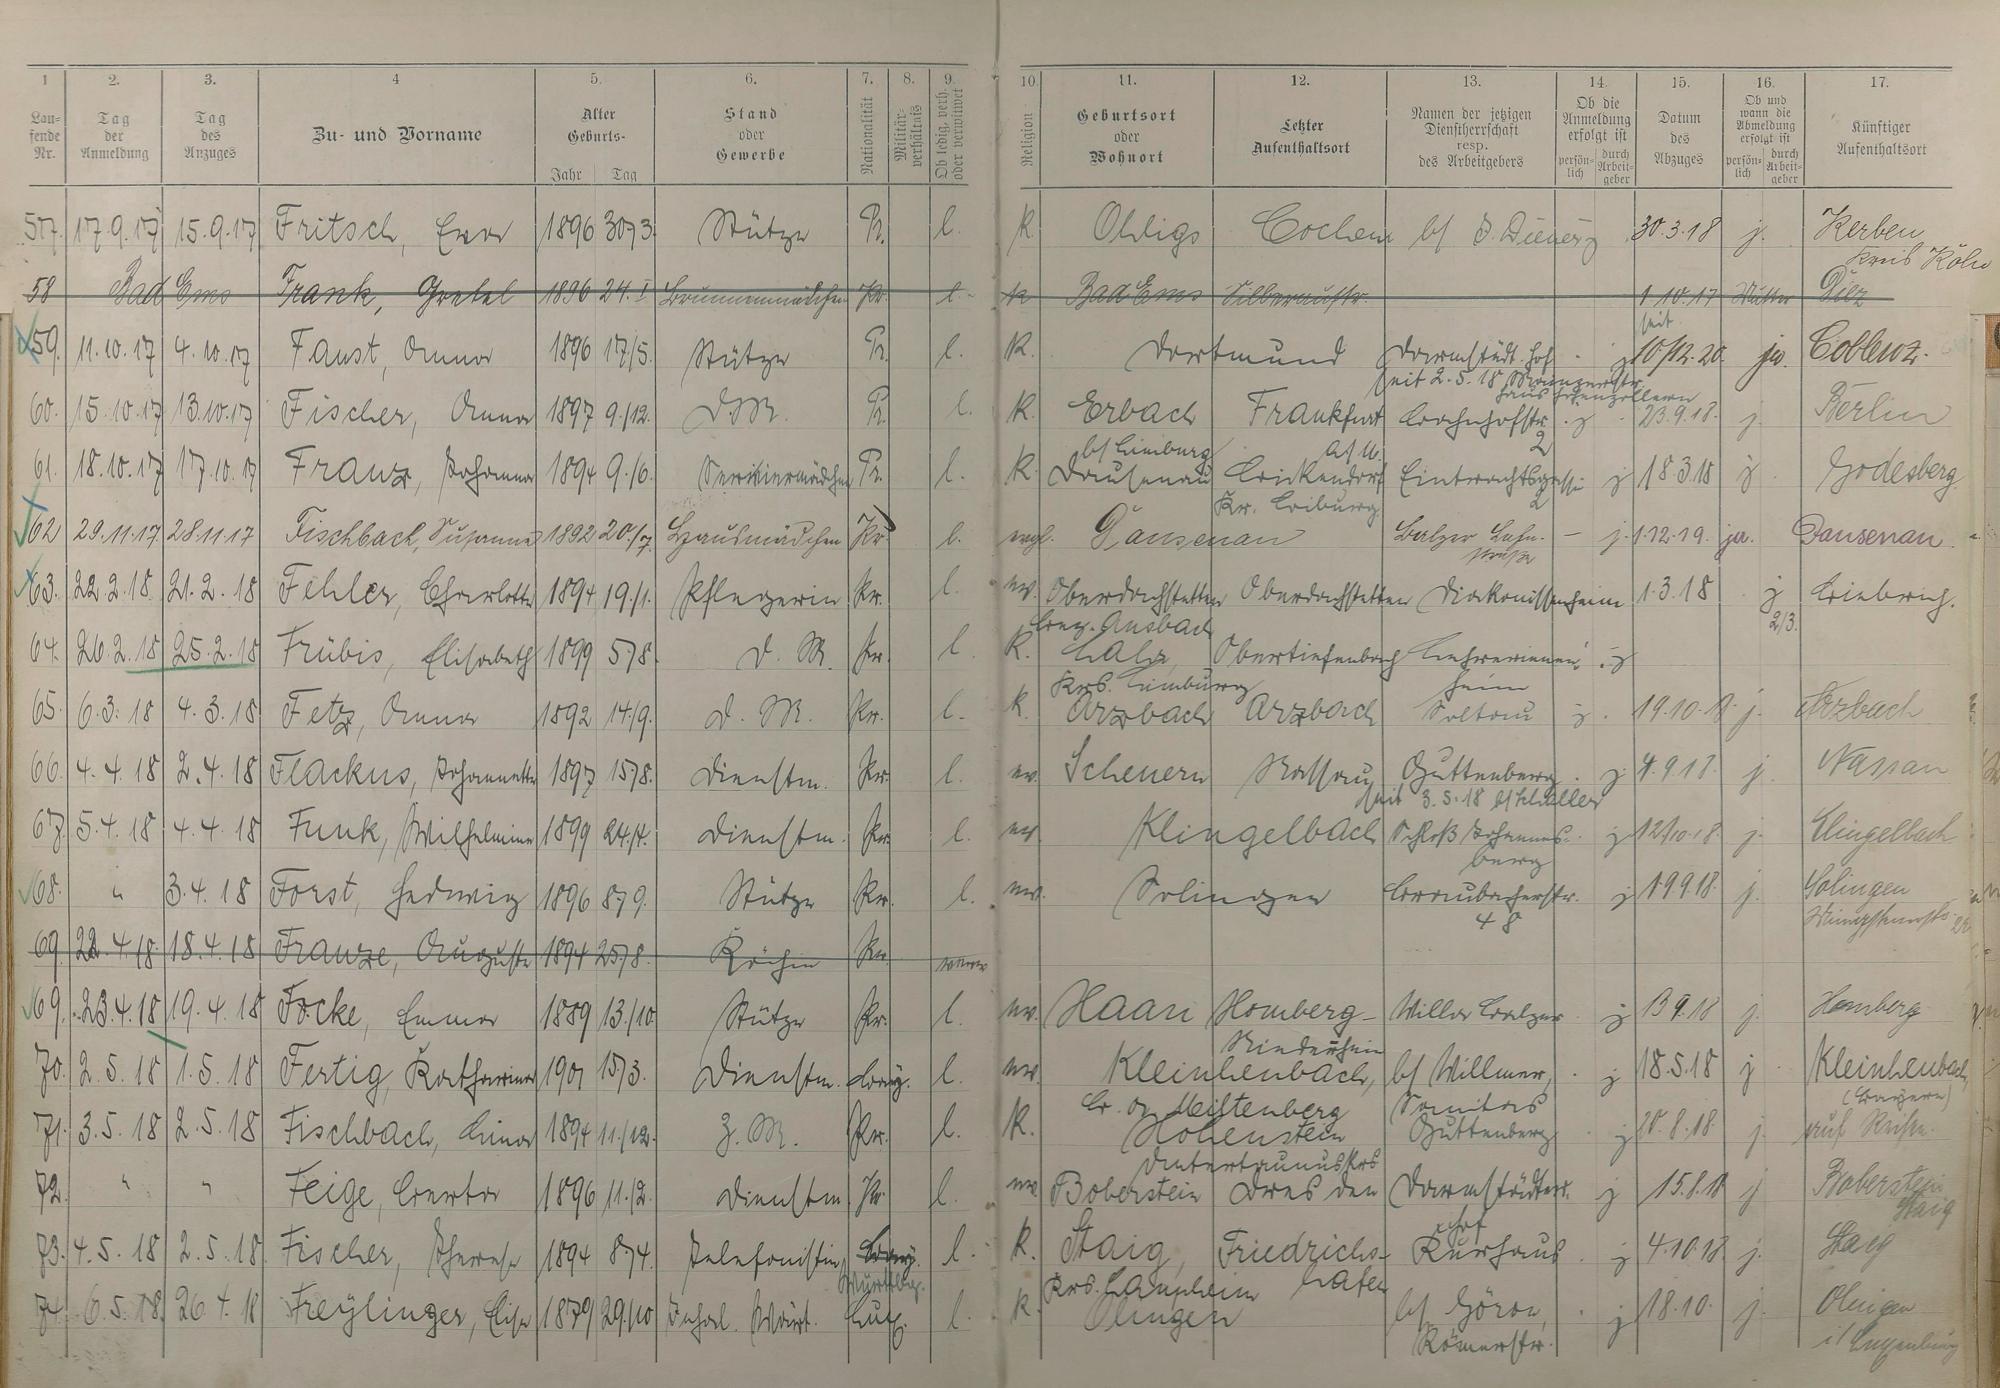 1 2. 3. 4 5. 6. 7. 8. 9. 10. 11. 12. 13. 14. 15. 16. 17.
Lau-fende Nr. Tag der Anmeldung Tag des Anzuges Zu- und Vorname Alter Geburts- Jahr Tag Stand oder Gewerbe Nationalität Militär-verhältnis Ob ledig, verh. oder verwitwet Religion Geburtsort oder Wohnort Letzter Aufenthaltsort Namen der jetzigen Dienstherrschaft resp. des Arbeitgebers Ob die Anmeldung erfolgt ist persön-lich durch Arbeit-geber Datum des Abzuges Ob und wann die Abmeldung erfolgt ist persön-lich durch Arbeit-geber Künftiger Aufenthaltsort
57. 17.9.17 15.9.17 Fritsch, Erna 1896 30/3 Stütze Pr. l. k. Ohligs Cochem b/ 30.3.18 j. Kerben
Kreis Köln
58 Bad Ems Frank, Gretel 1896 24.I Brunnenmädchen Pr. l. k Bad Ems Silberaustr. 1.10.17 Mutter Diez
seit
59. 11.10.17 4.10.17 Faust, Anna 1896 17/5. Stütze Pr. l. K. Dortmund Darmstädt. Hof j 10/12.20. ja. Coblenz.
seit 2.5.18 Mainzerstr.
Haus Hohenzollern
60. 15.10.17 13.10.17 Fischer, Anna 1897 9./12. D.M. Pr. l. K. Erbach Frankfurt Bahnhofstr. j 23.9.18. j. Berlin
b/ Limburg a/M. 2
61. 18.10.17 17.10.17 Franz, Johanna 1894 9./6. Serviermädchen Pr. l. K. Dausenau Birkendorf Eintrachtsgasse j 18.3.18 j Godesberg
Kr. Bitburg 2
62 29.11.17. 28.11.17 Fischbach, Susanna 1892 20./7. Hausmädchen Pr. l. evgl. Dausenau Balzer Bahn- j. 1.12.19. ja. Dausenau
straße
63. 22.2.18. 21.2.18 Fehler, Charlotte 1894 19./1. Pflegerin Pr. l. ev. Oberdachstetten Oberdachstetten Diakonissenheim 1.3.18 j Biebrich.
Bez. Ansbach 2/3.
64. 26.2.18 25.2.18 Frübis, Elisabeth 1899 5/8. d. M. Pr. l. K. Lahr, Obertiefenbach Lehrerinnen j
Krs. Limburg heim
65. 6.3.18 4.3.18 Fetz, Anna 1892 14./9. d. M. Pr. l. K. Arzbach Arzbach Soltau j. 19.10.18 j. Arzbach
66. 4.4.18 2.4.18 Flackus, Johannette 1897 15/8. Dienstm. Pr. l. ev. Scheuern Nassau Guttenberg j 4.9.18. j. Nassau
seit 3.5.18 b/ Schaller
67. 5.4.18 4.4.18 Funk, Wilhelmine 1899 24./4. Dienstm. Pr. l. ev. Klingelbach Schloß Johannes- j 12/10.18 j. Klingelbach
berg
68. " 3.4.18 Forst, Hedwig 1896 8/9. Stütze Pr. l. ev. Solingen Braubacherstr. j 19.9.18. j. Solingen
48
69. 22.4.18 18.4.18 Franze, Auguste 1894 25/8. Köchin Pr.
69. 23.4.18 19.4.18 Focke, Emma 1889 13./10 Stütze Pr. l. ev. Haan Homberg- Villa Balzer j 13.9.18 j. Homberg
Niederrhein
70. 2.5.18 1.5.18 Fertig, Katharina 1901 15/3. Dienstm. Bay. l. ev. Kleinheubach, b/ Willmer, j 18.5.18 j Kleinheubach,
Miltenberg (Bayern)
71. 3.5.18 2.5.18 Fischbach, Lina 1894 11./12. Z. M. Pr. l. K. Hohenstein Guttenberg j 20.8.18. j. auf Reisen.
Untertaunuskrs
72. " " Feige, Berta 1896 11./2. Dienstm. Pr. l. ev. Boberstein Dresden Darmstädter j 15.8.18 j Boberstein
Hof Staig
73. 4.5.18 2.5.18. Fischer, Therese 1894 8/4. Telefonistin Bay. l. K. Staig, Friedrichs- Kurhaus j 4.10.18 j. Staig
Württbg. Krs. Laupheim hafen
74. 6.5.18. 26.4.18 Freylinger, Elise 1879 29./10 Lux. l. k. Olingen b/ Göron, j 18.10. j. Olingen
Römerstr. i/ Luxenburg